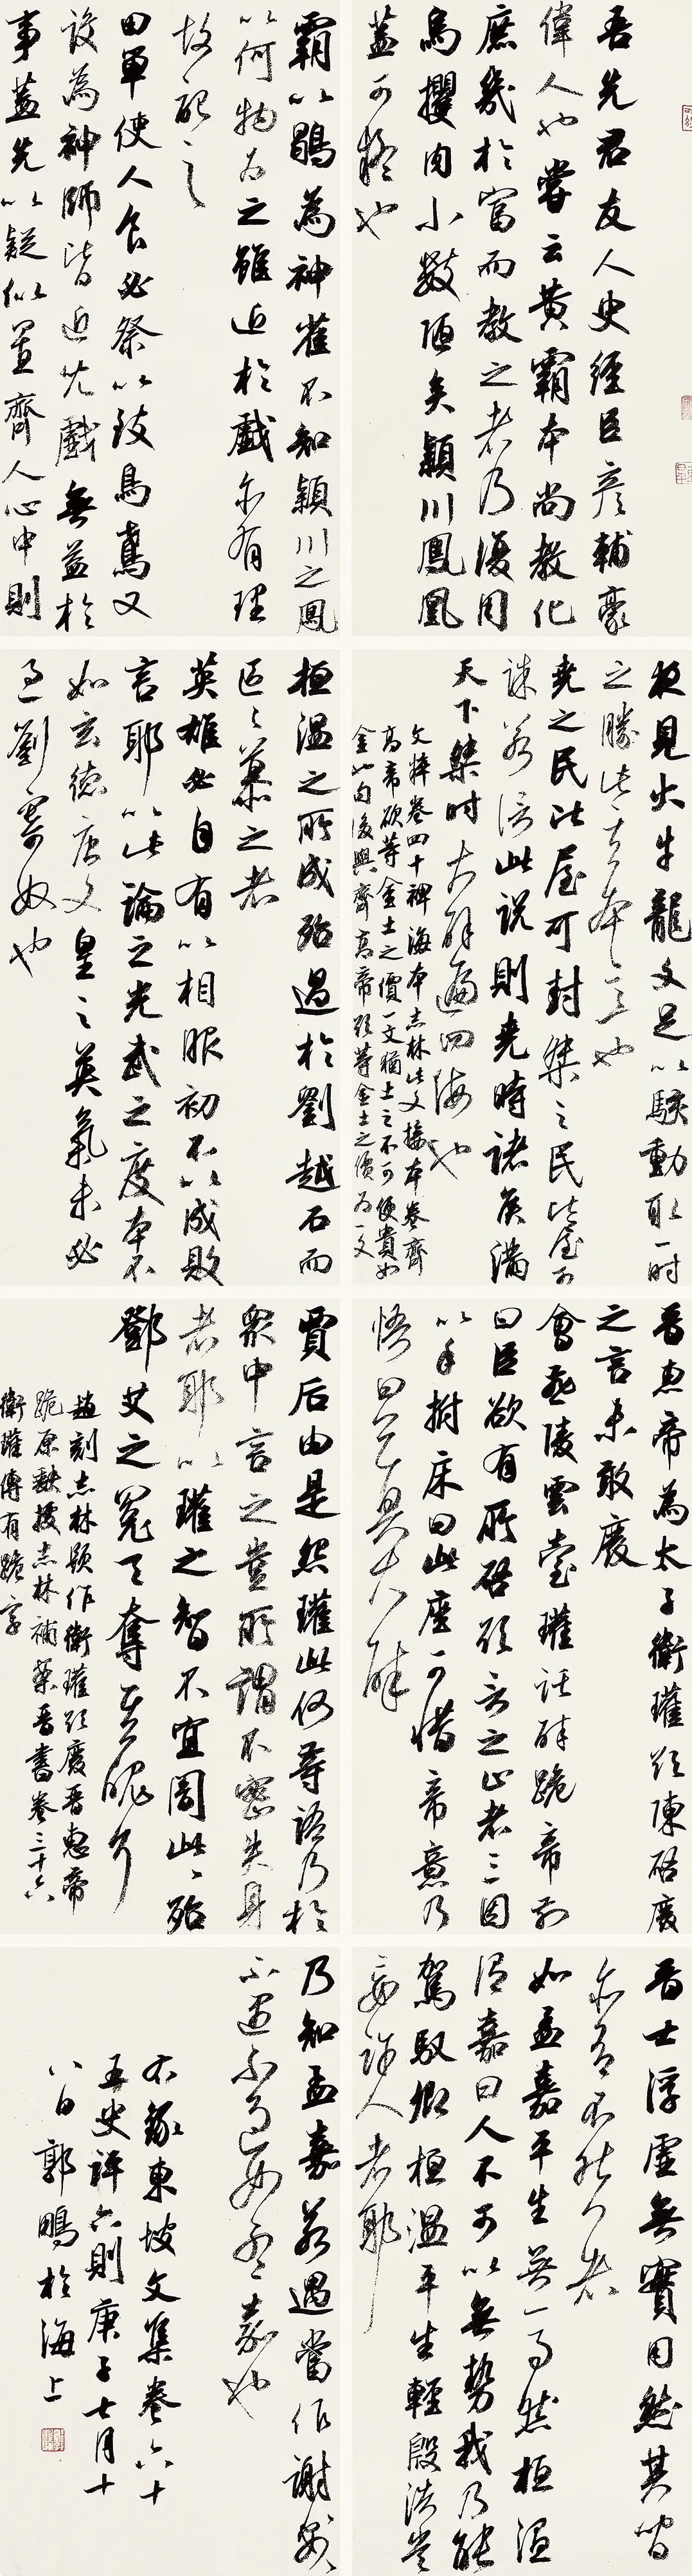 吾先君友人史經臣彥輔豪
偉人也嘗云黃霸本尚教化
庶幾於富而教之者乃復用
烏攫肉小數陋矣潁川鳳凰
蓋可疑也
霸以鶡為神雀不知潁川之鳳
以何物為之雖近於戲亦有理
故記之
田單使人食必祭以致烏鳶又
設為神師皆近兒戲無益於
事蓋先以疑似置齊人心中則
夜見火牛龍文足以駭動取一時
之勝此其本意也
堯之民比屋可封桀之民比屋可
誅若信此說則堯時諸侯滿
天下桀時大辟遍四海也
文粹卷四十稗海本志林此文接本卷齊
高帝欲等金土之價一文猶土之不可使貴如
金以自後興齊高帝欲等金土之價為一文
桓溫之所成殆過於劉越石而
區區慕之者
英雄必自有以相服初不以成敗
言耶以此論之光武之度本不
如玄德唐文皇之英氣未必
過劉寄奴也
晉惠帝為太子衛瓘欲陳啟廢
之言未敢廢
會燕陵雲臺瓘託醉跪帝前
曰臣欲有所啟欲言之止者三因
以手拊床曰此座可惜帝意乃
悟曰公真大醉
賈后由是怨瓘此何等語乃於
眾中言之豈所謂不密失身
者耶以瓘之智不宜闇此殆
鄧艾之冤天奪其魄爾
趙刻志林題作衛瓘欲廢晉惠帝
跪原缺據志林補案晉書卷三十六
衛瓘傳有跪字
晉士浮虛無實用然其間
亦有不然者
如孟嘉平生無一事然桓溫
謂嘉曰人不可以無勢我乃能
駕馭卿桓溫平生輕殷浩豈
妄許人者耶
乃知孟嘉若遇當作謝安
不遇不過如孟嘉也
右錄東坡文集卷六十
五史評六則庚子七月十
八日郭鵬於海上